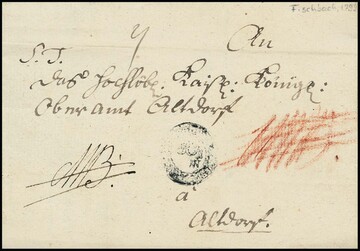 Fischbach, 1793
An
S. T.
Das Hochlöbl. Kaiß: Königl:
Ober Amt Altdorf
à
Altdorf.